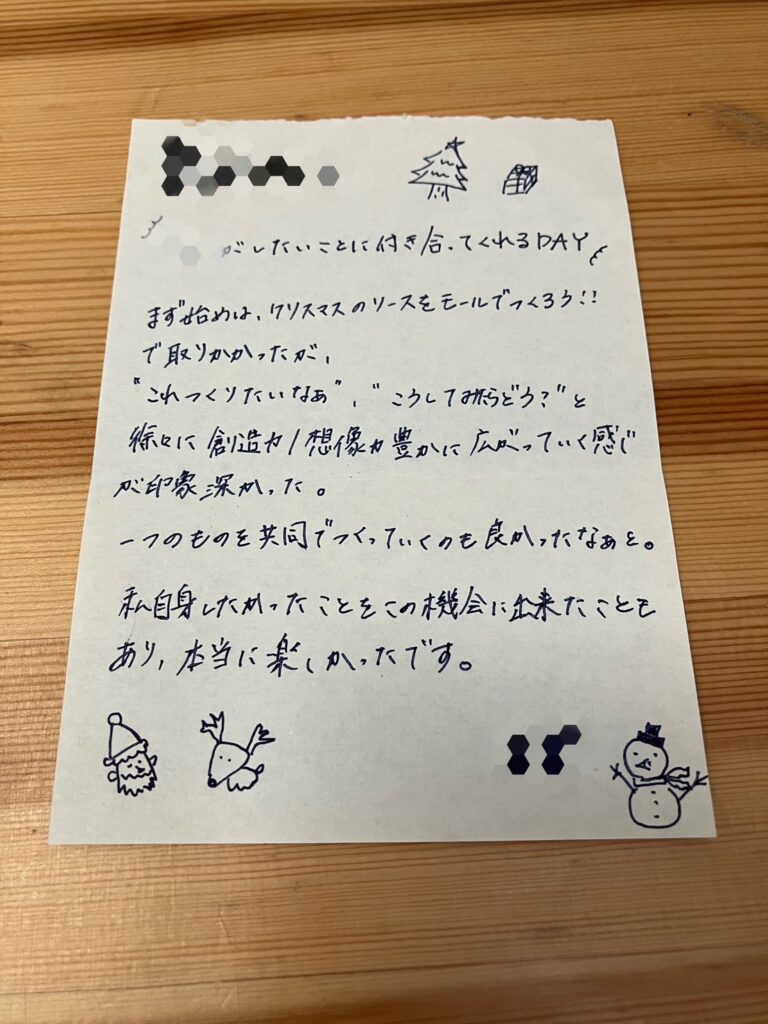 がしたいことに付き合ってくれるDAY
まず始めは、クリスマスのリースをモールでつくろう!!
で取りかかったが、
"これつくりたいなぁ"、"こうしてみたらどう?"と
徐々に創造力/想像力豊かに広がっていく感じ
が印象深かった。
一つのものを共同でつくっていくのも良かったなぁと。
私自身したかったことをこの機会に出来たことも
あり、本当に楽しかったです。